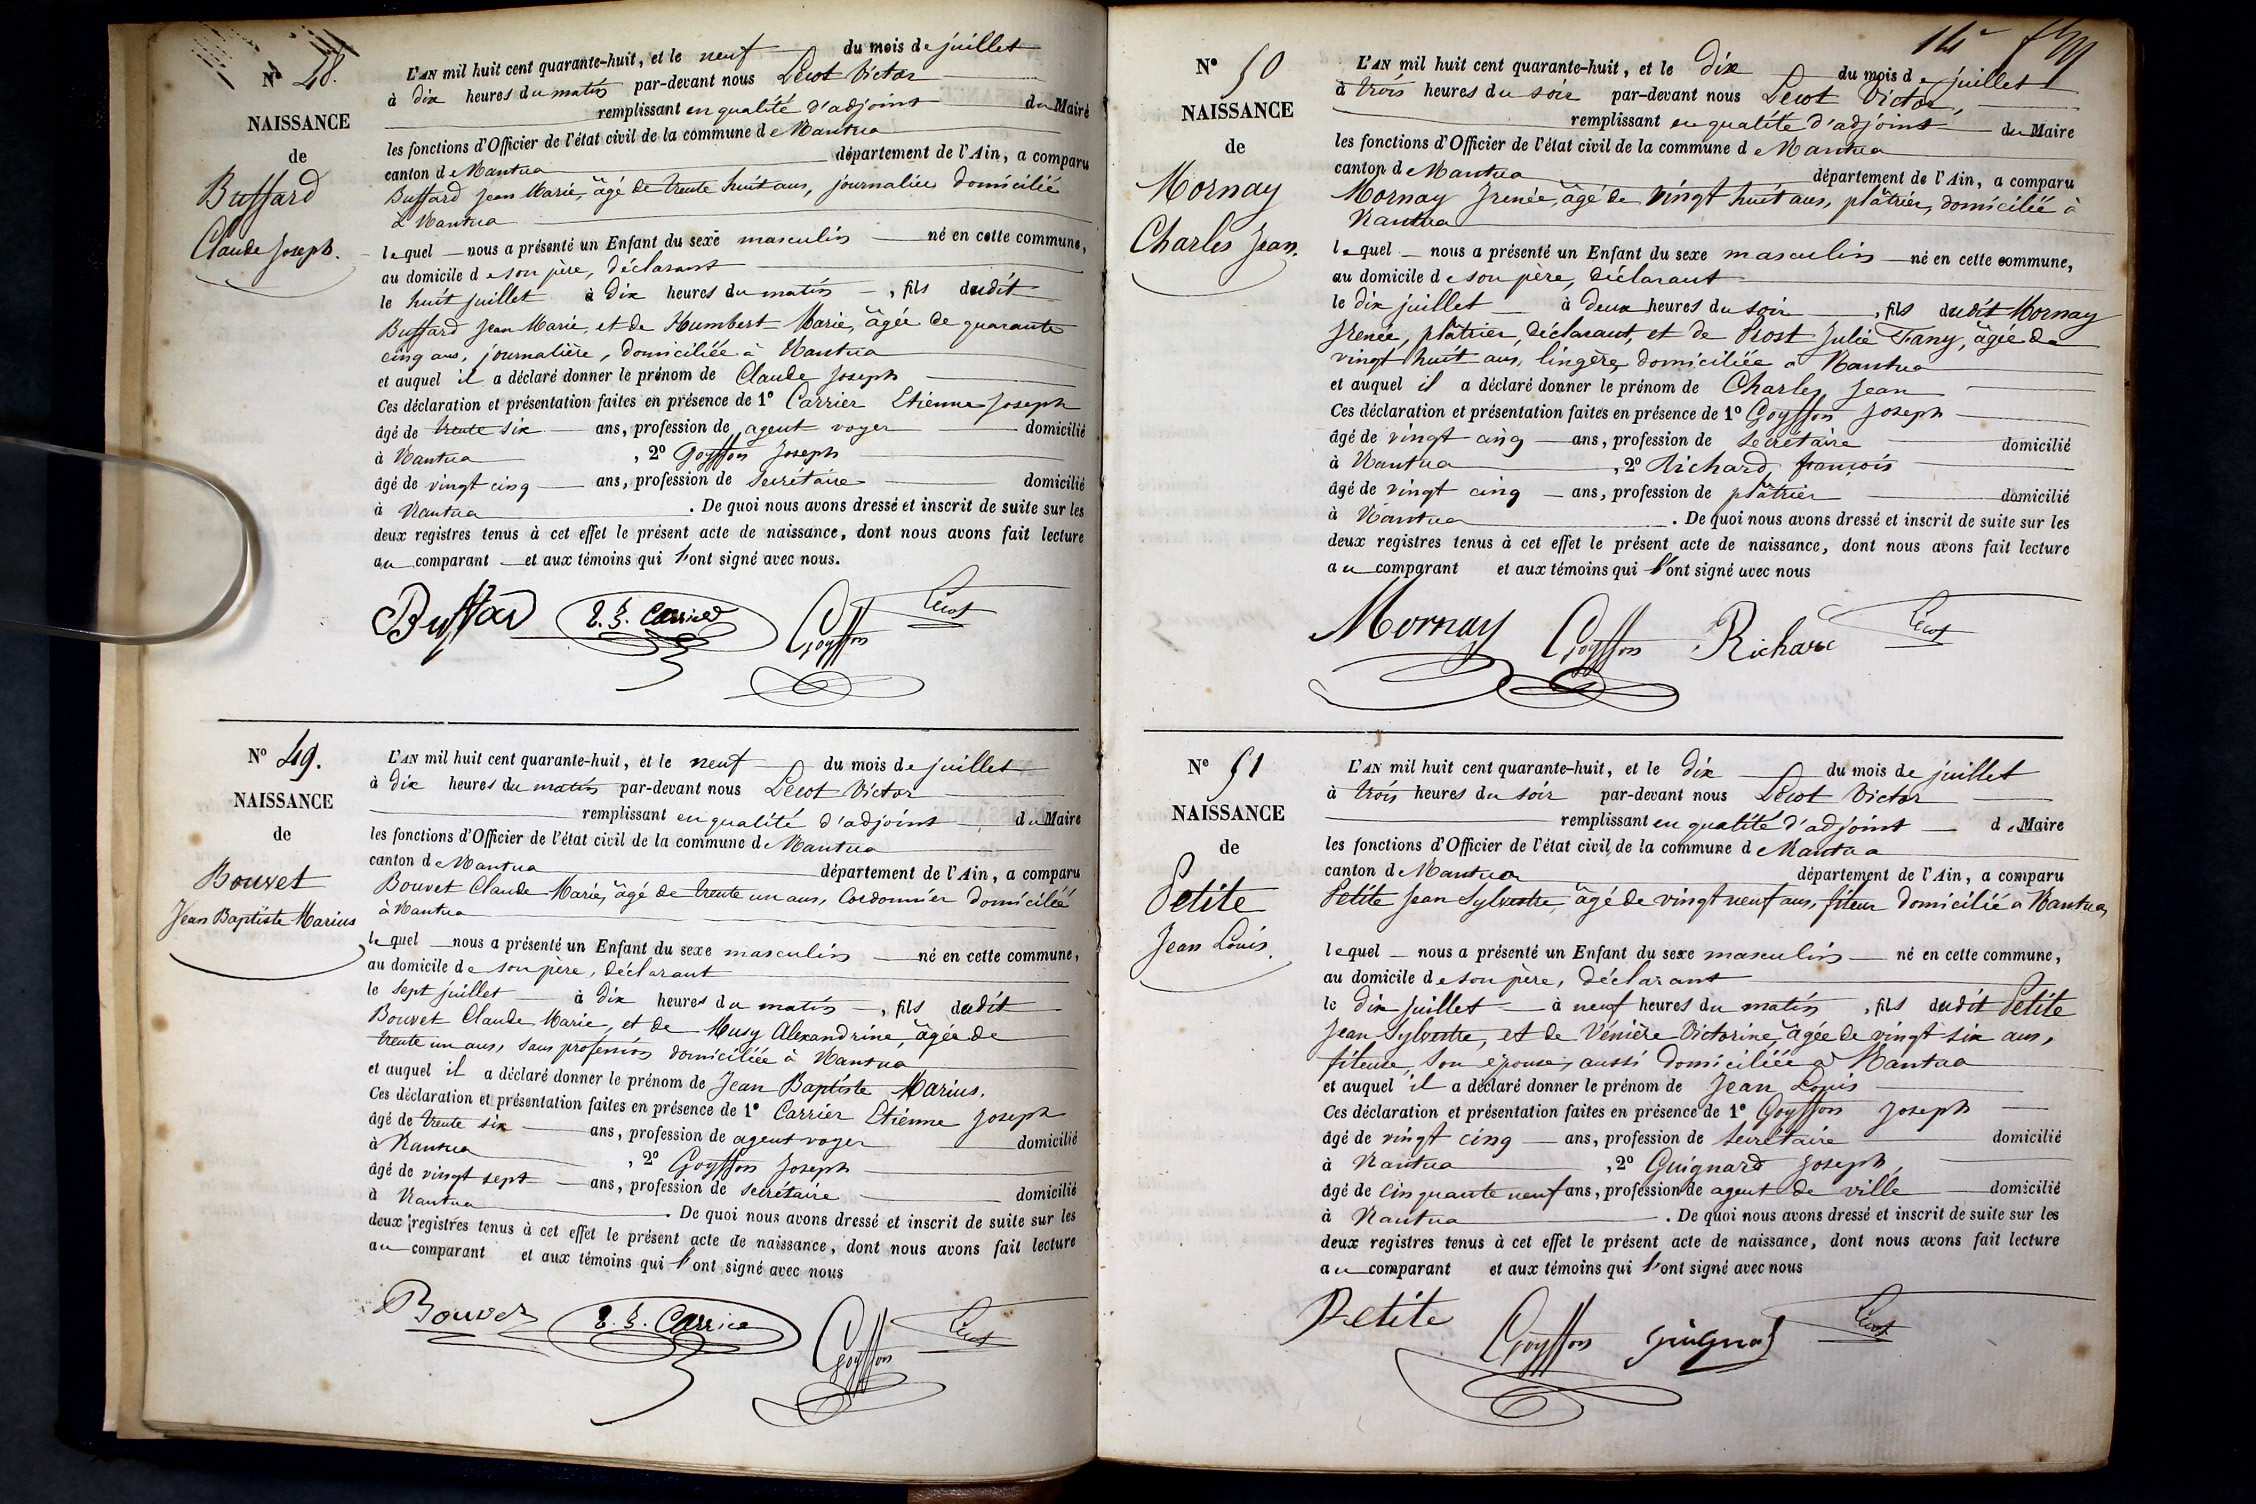 N° 48.
NAISSANCE
de
Buffard
Claude Joseph.
L'AN mil huit cent quarante-huit, et le neuf du mois de juillet
à dix heures du matin par-devant nous Lecot Victor
remplissant en qualité d'adjoint du Maire
les fonctions d'Officier de l'état civil de la commune de Nantua
canton de Nantua département de l'Ain, a comparu
Buffard Jean Marie, âgé de trente huit ans, journalier domicilié
à Nantua
lequel nous a présenté un Enfant du sexe masculin né en cette commune,
au domicile de son père, déclarant
le huit juillet à dix heures du matin, fils dudit
Buffard Jean Marie, et de Humbert Marie, âgée de quarante
cinq ans, journalière, domiciliée à Nantua
et auquel il a déclaré donner le prénom de Claude Joseph
Ces déclaration et présentation faites en présence de 1° Carrier Etienne Joseph
âgé de trente six ans, profession de agent voyer domicilié
à Nantua, 2° Goyffon Joseph
âgé de vingt cinq ans, profession de secrétaire domicilié
à Nantua. De quoi nous avons dressé et inscrit de suite sur les
deux registres tenus à cet effet le présent acte de naissance, dont nous avons fait lecture
au comparant et aux témoins qui l'ont signé avec nous.
Buffard E. J. Carrier Goyffon Lecot
N° 49.
NAISSANCE
de
Bouvet
Jean Baptiste Marius
L'AN mil huit cent quarante-huit, et le neuf du mois de juillet
à dix heures du matin par-devant nous Lecot Victor
remplissant en qualité d'adjoint du Maire
les fonctions d'Officier de l'état civil de la commune de Nantua
canton de Nantua département de l'Ain, a comparu
Bouvet Claude Marie, âgé de trente un ans, Cordonnier domicilié
à Nantua
lequel nous a présenté un Enfant du sexe masculin né en cette commune,
au domicile de son père, déclarant
le sept juillet à dix heures du matin, fils dudit
Bouvet Claude Marie, et de Musy Alexandrine, âgée de
trente un ans, sans profession domiciliée à Nantua
et auquel il a déclaré donner le prénom de Jean Baptiste Marius.
Ces déclaration et présentation faites en présence de 1° Carrier Etienne Joseph
âgé de trente six ans, profession de agent voyer domicilié
à Nantua, 2° Goyffon Joseph
âgé de vingt sept ans, profession de secrétaire domicilié
à Nantua. De quoi nous avons dressé et inscrit de suite sur les
deux registres tenus à cet effet le présent acte de naissance, dont nous avons fait lecture
au comparant et aux témoins qui l'ont signé avec nous
Bouvet E. J. Carrier Goyffon Lecot
N° 50
NAISSANCE
de
Mornay
Charles Jean.
L'AN mil huit cent quarante-huit, et le dix du mois de juillet
à trois heures du soir par-devant nous Lecot Victor,
remplissant en qualité d'adjoint du Maire
les fonctions d'Officier de l'état civil de la commune de Nantua
canton de Nantua département de l'Ain, a comparu
Mornay Irenée, âgé de vingt huit ans, plâtrier, domicilié à
Nantua
lequel nous a présenté un Enfant du sexe masculin né en cette commune,
au domicile de son père, déclarant
le dix juillet à deux heures du soir, fils dudit Mornay
Irenée, plâtrier, déclarant, et de Prost Julie Fany, âgée de
vingt huit ans, lingère, domiciliée à Nantua
et auquel il a déclaré donner le prénom de Charles Jean
Ces déclaration et présentation faites en présence de 1° Goyffon Joseph
âgé de vingt cinq ans, profession de secrétaire domicilié
à Nantua, 2° Richard françois
âgé de vingt cinq ans, profession de plâtrier domicilié
à Nantua. De quoi nous avons dressé et inscrit de suite sur les
deux registres tenus à cet effet le présent acte de naissance, dont nous avons fait lecture
au comparant et aux témoins qui l'ont signé avec nous
Mornay Goyffon Richard Lecot
N° 51
NAISSANCE
de
Petite
Jean Louis.
L'AN mil huit cent quarante-huit, et le dix du mois de juillet
à trois heures du soir par-devant nous Lecot Victor
remplissant en qualité d'adjoint de Maire
les fonctions d'Officier de l'état civil de la commune de Nantua
canton de Nantua département de l'Ain, a comparu
Petite Jean Sylvestre, âgé de vingt neuf ans, fileur domicilié à Nantua,
lequel nous a présenté un Enfant du sexe masculin né en cette commune,
au domicile de son père, déclarant
le dix juillet à neuf heures du matin, fils dudit Petite
Jean Sylvestre, et de Vénière Victorine, âgée de vingt six ans,
fileuse, son épouse, aussi domiciliée à Nantua
et auquel il a déclaré donner le prénom de Jean Louis
Ces déclaration et présentation faites en présence de 1° Goyffon Joseph
âgé de vingt cinq ans, profession de secrétaire domicilié
à Nantua, 2° Guignard Joseph,
âgé de cinquante neuf ans, profession de agent de ville domicilié
à Nantua. De quoi nous avons dressé et inscrit de suite sur les
deux registres tenus à cet effet le présent acte de naissance, dont nous avons fait lecture
au comparant et aux témoins qui l'ont signé avec nous
Petite Goyffon Guignard Lecot